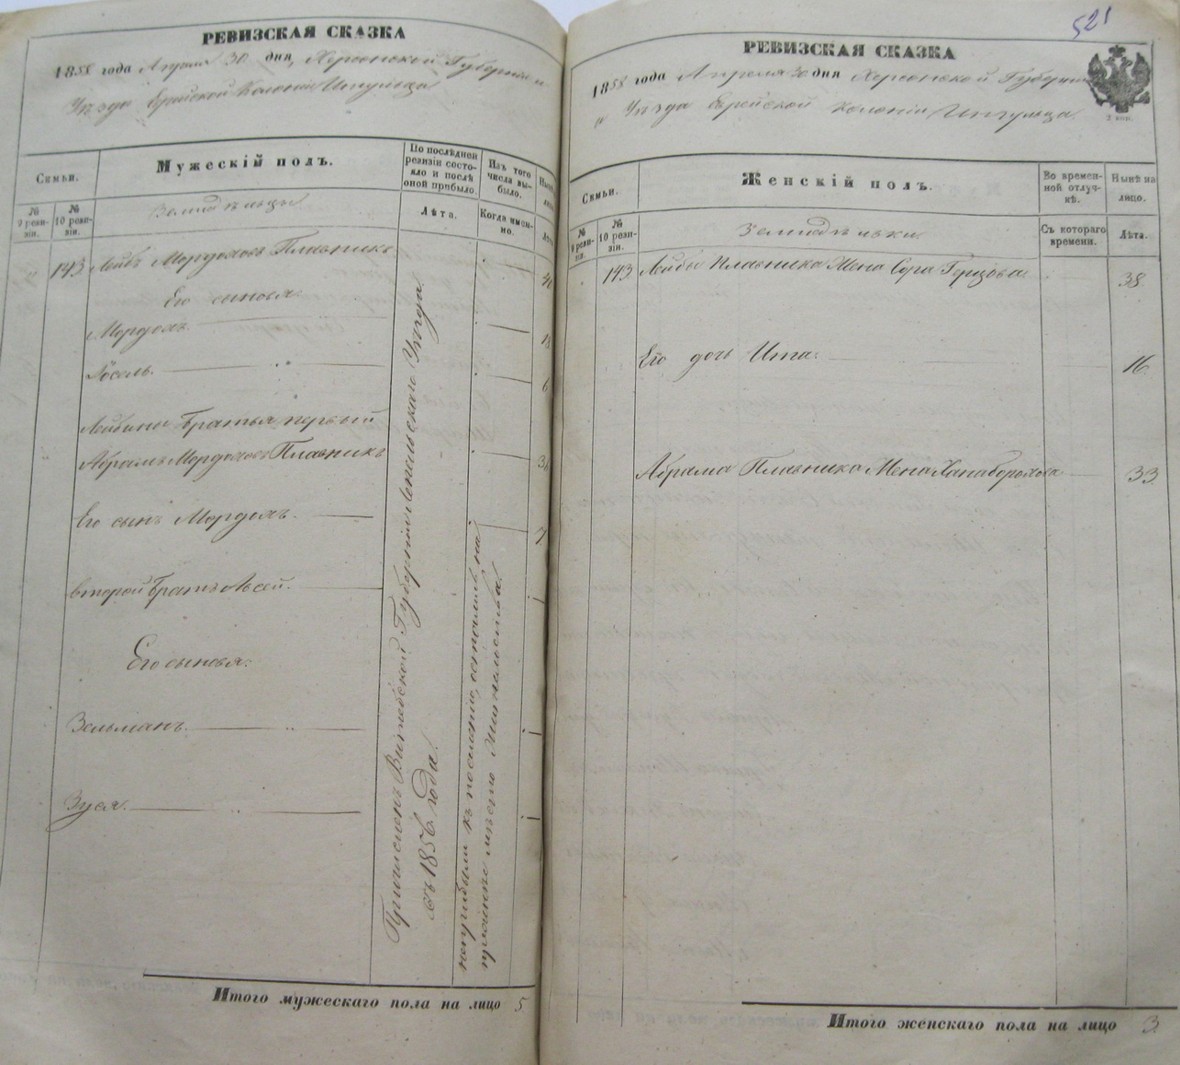 РЕВИЗСКАЯ СКАЗКА
1858 года Апреля 30 дня, Херсонской Губерніи и
Уѣзда Еврейской Колоніи Ингульца
Семьи.
Мужескій полъ.
По послѣдней ревизіи состояло и послѣ оной прибыло.
Изъ того числа выбыло.
№ 9 ревизіи.
№ 10 ревизіи.
Земледѣльцы
Лѣта.
Когда именно.
143 Лейбъ Мордоховъ Плавникъ 40
Его сыновья
Мордохъ 18
Іосель. 6
Лейбины Братья первый
Абрамъ Мордоховъ Плавникъ 34
Его сынъ Мордохъ. 7
второй Братъ Овсей.
Его сыновья:
Зельманъ.
Зуся.
Причисленъ Витебской Губерніи Уѣзда
съ 1856 года.
неприбыли къ поселенію, остались на
прежнемъ мѣстѣ жительства.
Итого мужескаго пола на лицо 5
521
РЕВИЗСКАЯ СКАЗКА
1858 года Апреля 30 дня Херсонской Губерніи
и Уѣзда Еврейской Колоніи Ингульца
2 коп.
Семьи.
Женскій полъ.
Во временной отлучкѣ.
Нынѣ на лицо.
№ 9 ревизіи.
№ 10 ревизіи.
Земледѣлки.
Съ котораго времени.
Лѣта.
143 Лейбы Плавника Жена Сора Герцова 38
Его дочь Ита. 16
Абрама Плавника Жена Хана 33
Итого женскаго пола на лицо 3